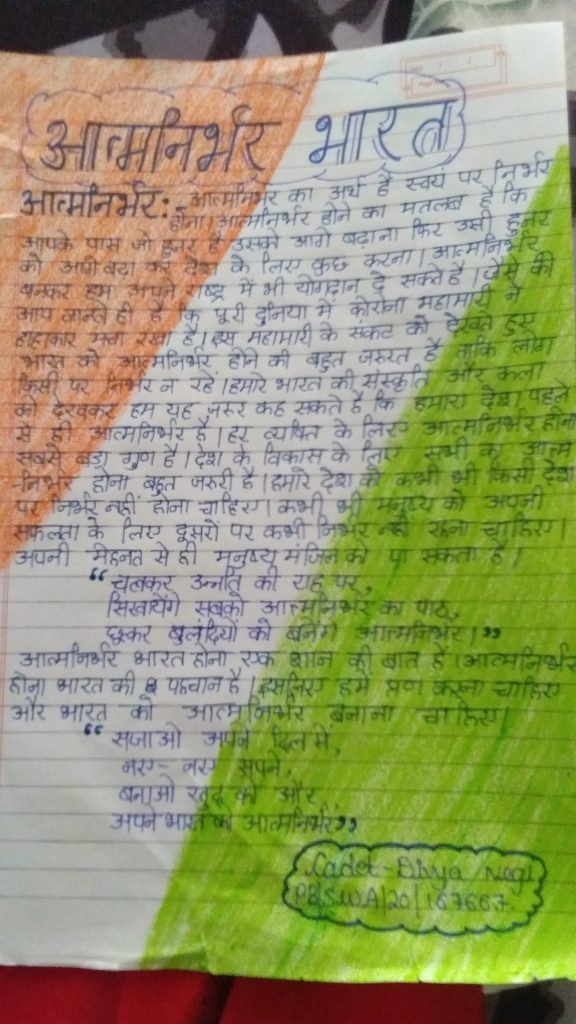 आत्मनिर्भर भारत
आत्मनिर्भर:- आत्मनिर्भर का अर्थ है स्वयं पर निर्भर
होना। आत्मनिर्भर होने का मतलब है कि
आपके पास जो हुनर है उसको आगे बढ़ाना फिर उसी हुनर
को आगे बढ़ा कर देश के लिए कुछ करना। आत्मनिर्भर
बनकर हम अपने राष्ट्र में भी योगदान दे सकते है। जैसे की
आप जानते ही है कि पूरी दुनिया में कोरोना महामारी ने
हाहाकार मचा रखा है। इस महामारी के संकट को देखते हुए
भारत को आत्मनिर्भर होने की बहुत जरुरत है ताकि लोग
किसी पर निर्भर न रहें। हमारे भारत की संस्कृति और कला
को देखकर हम यह ज़रूर कह सकते है कि हमारा देश पहले
से ही आत्मनिर्भर है। हर व्यक्ति के लिए आत्मनिर्भर होना
सबसे बड़ा गुण है। देश के विकास के लिए सभी का आत्म
-निर्भर होना बहुत जरुरी है। हमारे देश को कभी भी किसी देश
पर निर्भर नहीं होना चाहिए। कभी भी मनुष्य को अपनी
सफलता के लिए दूसरों पर कभी निर्भर नहीं रहना चाहिए।
अपनी मेहनत से ही मनुष्य मंजिल को पा सकता है।
“चलकर उन्नति की राह पर,
सिखायेंगे सबको आत्मनिर्भर का पाठ,
छूकर बुलंदियों को बनेंगे आत्मनिर्भर।”
आत्मनिर्भर भारत होना एक शान की बात है। आत्मनिर्भर
होना भारत की पहचान है। इसलिए हमें प्रण करना चाहिए
और भारत को आत्मनिर्भर बनाना चाहिए।
“सजाओ अपने दिल में,
नए-नए सपने,
बनाओ खुद को और,
अपने भारत को आत्मनिर्भर”
Cadet-Divya Negi
PB/SWA/20/167667